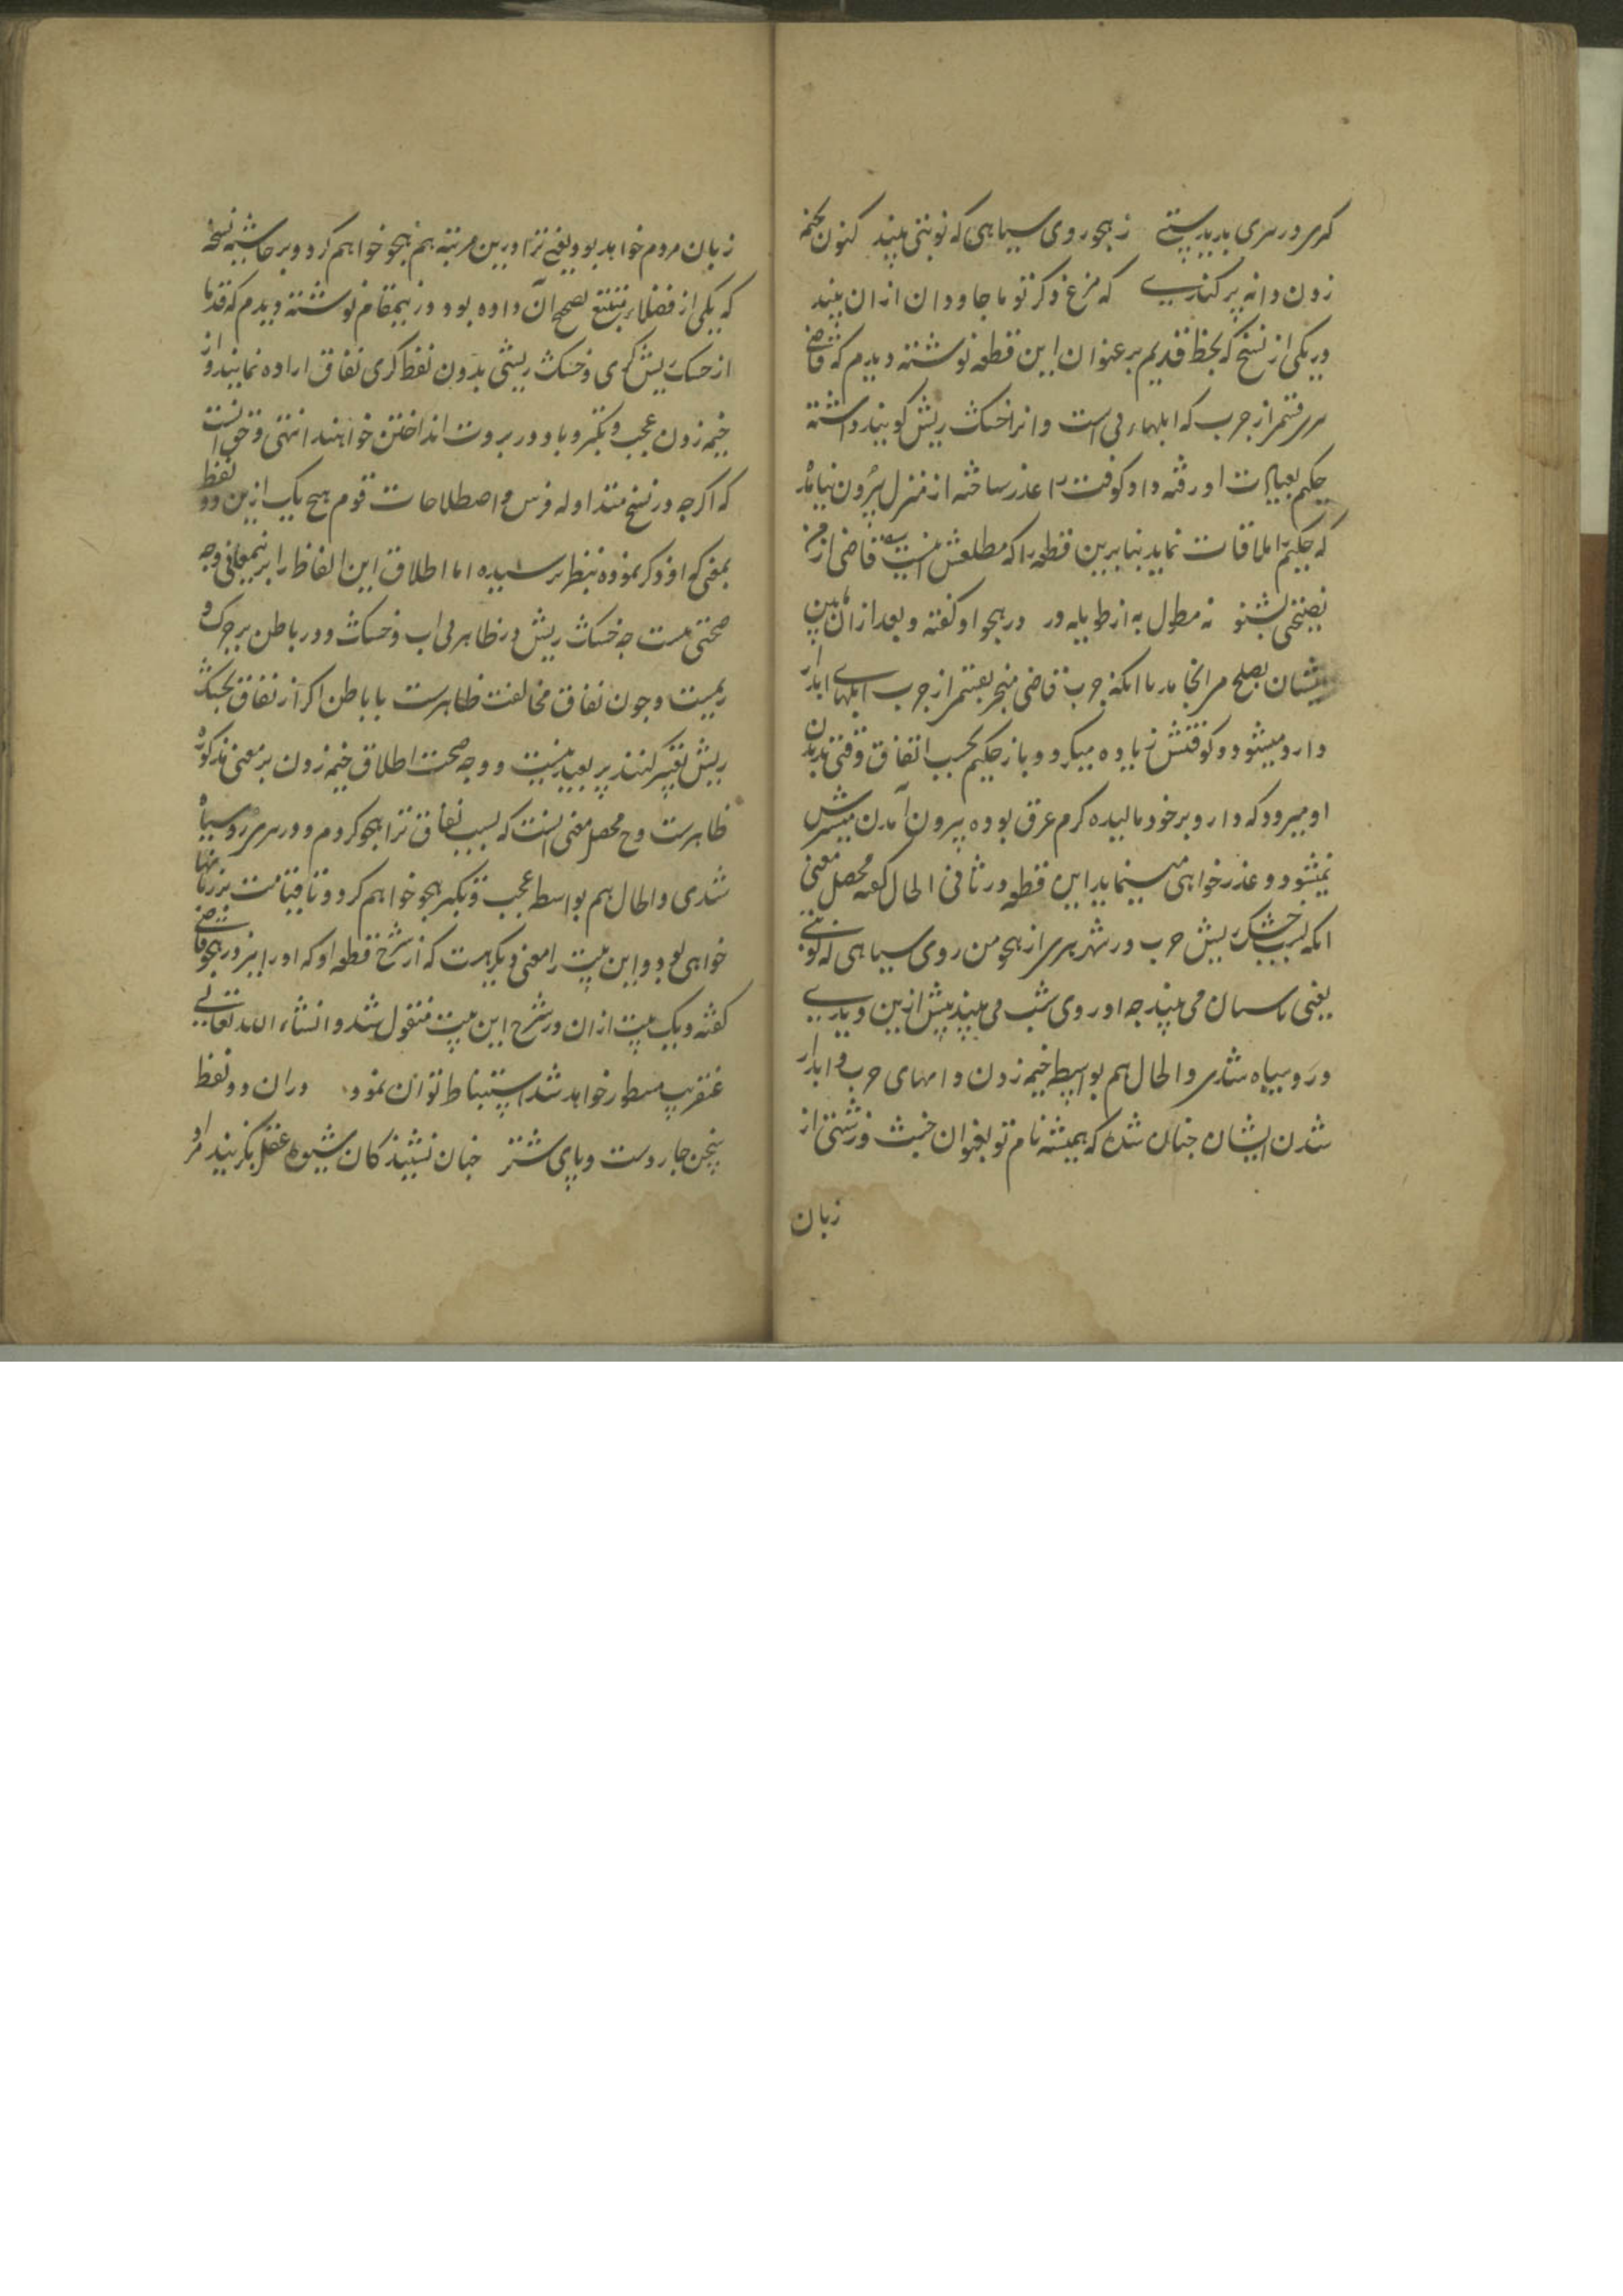 کری در سری بدیدستی ز هجو روی سیاهی که تو بتی بیند کنون بخیمه
زدن دانه پر کنادی که مرغ ذکر تو تا جاودان ازان بیند
در یکی از نسخ که بخط قدیم بر عنوان این قطعه نوشته دیدم که قاضی
سرقتمر از جرب که ابلهاء بی است و انرا خشک ریش کویند داشته
حکیم بعیادت او رفته و او کوفت را عذر ساخته از منزل بیرون نیامد
که حکیم را ملاقات نماید بنابرین قطعه را که مطلعش اینست قاضی از من
نصیحتی بشنو نه مطول به از طویله در در هجو او کفته و بعد ازان بین
ایشان بصلح سر انجامد با انکه جرب قاضی منجر بقسمی از جرب ابلهای ابدار
دار میشود و کوفتش زیاده میکردد و باز حکیم بحسب اتفاق وقتی بدیدن
او میرود که دارو بر خود مالیده کرم عرق بوده بیرون آمدن میسرش
نمیشود و عذر خواهی مینماید این قطعه در ثانی الحال کفته محصل معنی
انکه بسبب خشک ریش جرب در شهر سری از هجو من روی سیاهی که تو بتی
یعنی باسبان می بیند چه او روی شب می بیند پیش ازین دیدی
و رو سیاه شدی و الحال هم بواسطه خیمه زدن دانهای جرب و ابدار
شدن ایشان چنان شده که همیشه نام تو بعنوان خبث و زشتی از
زبان
زبان مردم خواهد بود یعنی ترا درین مرتبه هم هجو خواهم کرد و بر حاشیه نسخه
که یکی از فضلاء متتبع تصحیح آن داده بود در ینمقام نوشته دیدم که قدما
از خشک ریش کری و خشک ریشی بدون لفظ کری نفاق اراده نمایند و از
خیمه زدن عجب و تکبر و باد در بروت انداختن خواهند انتهی و حق انست
که اکر چه در نسخ متداوله فرس و اصطلاحات قوم هیچ یک ازین دو لفظ
بمعنی که او ذکر نموده بنظر نرسیده اما اطلاق این الفاظ را بر ینمعانی وجه
صحتی هست چه خشک ریش در ظاهر بی اب و خشک و در باطن پر چرک و
ریمست و چون نفاق مخالفت ظاهرست با باطن اکر از نفاق بخشک
ریش تعبیر کنند پر بعید نیست و وجه صحت اطلاق خیمه زدن بر معنی مذکوره
ظاهرست و ح محصل معنی انست که بسبب نفاق ترا هجو کردم و در سری رو سیاه
شدی و الحال هم بواسطه عجب و تکبر هجو خواهم کرد و تا قیامت بر زبانها
خواهی بود و این بیت را معنی دیکر هست که از شرح قطعه او که او را نیز در هجو قاضی
کفته و یک بیت ازان در شرح این بیت منقول شد و انشاء الله تعالی
عنقریب مسطور خواهد شد استنباط توان نمود دران دو لفظ
بپنجن چار دست و پای شتر چنان نشیند کان شیوه عقل بکزیند او